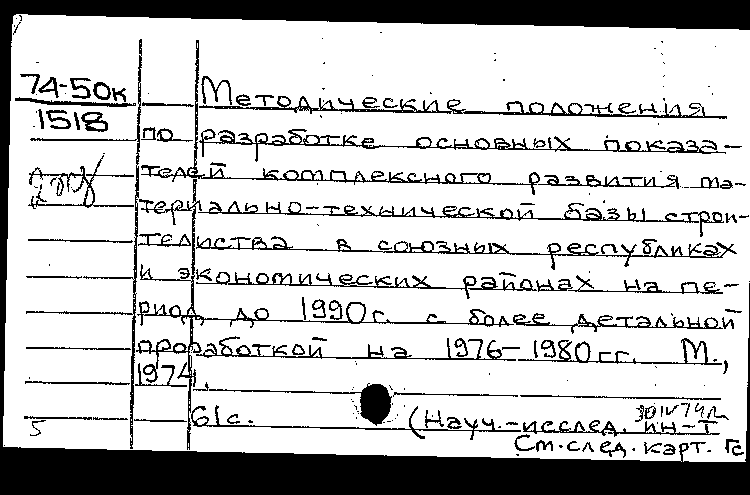 74-50к
1518
Методические положения
по разработке основных показа-
телей комплексного развития ма-
териально-технической базы строи-
тельства в союзных республиках
и экономических районах на пе-
риод до 1990г. с более детальной
проработкой на 1976-1980гг. М.,
1974.
61с. (Науч.-исслед. ин-т
См.след.карт.
5